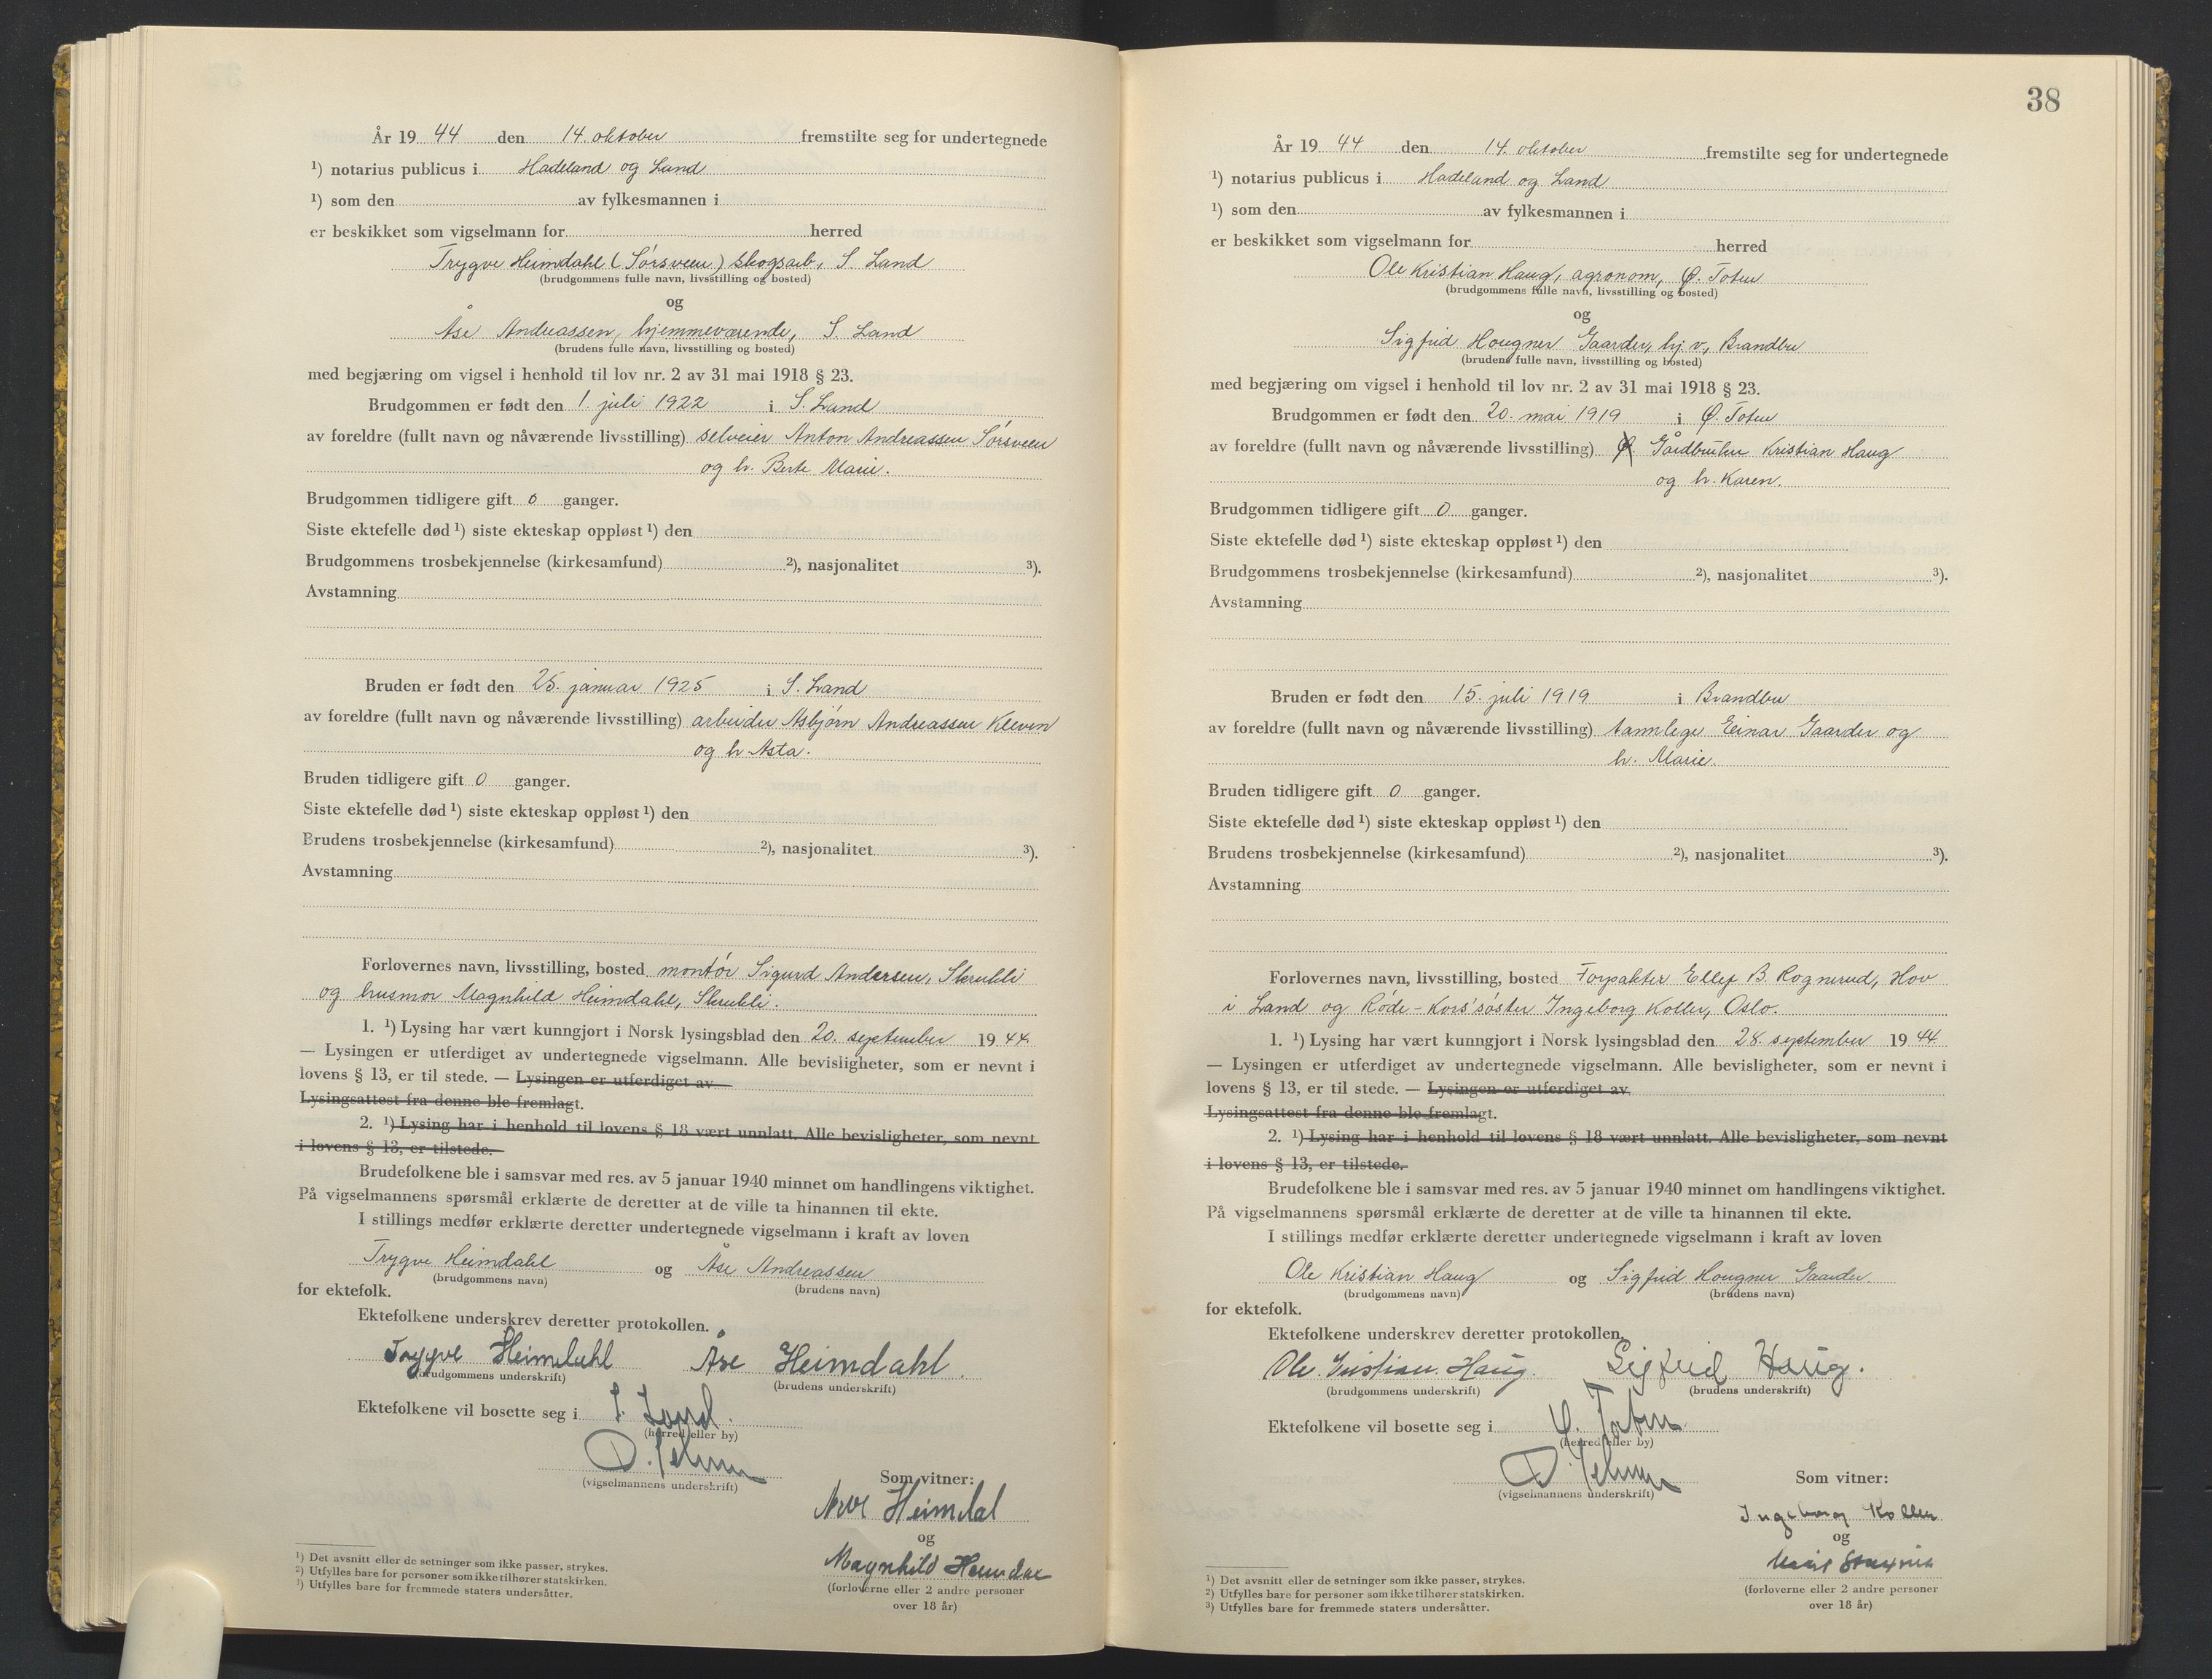 År 19 44 den 14. oktober fremstilte seg for undertegnede
¹) notarius publicus i Hadeland og Land
¹) som den av fylkesmannen i
er beskikket som vigselmann for herred
Trygve Heimdahl (Sørsveen) skogsarb, S. Land
(brudgommens fulle navn, livsstilling og bosted)
og
Åse Andreassen, hjemmeværende, S. Land
(brudens fulle navn, livsstilling og bosted)
med begjæring om vigsel i henhold til lov nr. 2 av 31 mai 1918 § 23.
Brudgommen er født den 1. juli 1922 i S. Land
av foreldre (fullt navn og nåværende livsstilling) selveier Anton Andreassen Sørsveen
og h. Berte Marie.
Brudgommen tidligere gift 0 ganger.
Siste ektefelle død ¹) siste ekteskap oppløst ¹) den
Brudgommens trosbekjennelse (kirkesamfund) ²), nasjonalitet ³).
Avstamning
Bruden er født den 25. januar 1925 i S. Land
av foreldre (fullt navn og nåværende livsstilling) arbeider Asbjørn Andreassen Kleven
og h. Asta.
Bruden tidligere gift 0 ganger.
Siste ektefelle død ¹) siste ekteskap oppløst ¹) den
Brudens trosbekjennelse (kirkesamfund) ²), nasjonalitet ³).
Avstamning
Forlovernes navn, livsstilling, bosted montør Sigurd Andersen, Skrukli
og husmor Magnhild Heimdahl, Skrukli.
1. ¹) Lysing har vært kunngjort i Norsk lysingsblad den 20. september 19 44.
— Lysingen er utferdiget av undertegnede vigselmann. Alle bevisligheter, som er nevnt i
lovens § 13, er til stede. — Lysingen er utferdiget av
Lysingsattest fra denne ble fremlagt.
2. ¹) Lysing har i henhold til lovens § 18 vært unnlatt. Alle bevisligheter, som nevnt
i lovens § 13, er tilstede.
Brudefolkene ble i samsvar med res. av 5 januar 1940 minnet om handlingens viktighet.
På vigselmannens spørsmål erklærte de deretter at de ville ta hinannen til ekte.
I stillings medfør erklærte deretter undertegnede vigselmann i kraft av loven
Trygve Heimdahl og Åse Andreassen
(brudgommens navn) (brudens navn)
for ektefolk.
Ektefolkene underskrev deretter protokollen.
Trygve Heimdahl Åse Heimdahl.
(brudgommens underskrift) (brudens underskrift)
Ektefolkene vil bosette seg i S. Land.
(herred eller by)
(vigselmannens underskrift)
Som vitner:
Heimdal
og
Magnhild Heimdal
(forloverne eller 2 andre personer
over 18 år)
¹) Det avsnitt eller de setninger som ikke passer, strykes.
²) Utfylles bare for personer som ikke tilhører statskirken.
³) Utfylles bare for fremmede staters undersåtter.
38
År 19 44 den 14. oktober fremstilte seg for undertegnede
¹) notarius publicus i Hadeland og Land
¹) som den av fylkesmannen i
er beskikket som vigselmann for herred
Ole Kristian Haug, agronom, Ø. Toten
(brudgommens fulle navn, livsstilling og bosted)
og
Sigfrid Hougner Gaarder, hj. v., Brandbu
(brudens fulle navn, livsstilling og bosted)
med begjæring om vigsel i henhold til lov nr. 2 av 31 mai 1918 § 23.
Brudgommen er født den 20. mai 1919 i Ø. Toten
av foreldre (fullt navn og nåværende livsstilling) Ø. Gårdbruker Kristian Haug
og h. Karen.
Brudgommen tidligere gift 0 ganger.
Siste ektefelle død ¹) siste ekteskap oppløst ¹) den
Brudgommens trosbekjennelse (kirkesamfund) ²), nasjonalitet ³).
Avstamning
Bruden er født den 15. juli 1919 i Brandbu
av foreldre (fullt navn og nåværende livsstilling) tannlege Einar Gaarder og
h. Marie.
Bruden tidligere gift 0 ganger.
Siste ektefelle død ¹) siste ekteskap oppløst ¹) den
Brudens trosbekjennelse (kirkesamfund) ²), nasjonalitet ³).
Avstamning
Forlovernes navn, livsstilling, bosted Forpakter Ellef B. Rognerud, Hov
i Land og Røde-Kors'søster Ingeborg Koller, Oslo.
1. ¹) Lysing har vært kunngjort i Norsk lysingsblad den 28. september 19 44
— Lysingen er utferdiget av undertegnede vigselmann. Alle bevisligheter, som er nevnt i
lovens § 13, er til stede. — Lysingen er utferdiget av
Lysingsattest fra denne ble fremlagt.
2. ¹) Lysing har i henhold til lovens § 18 vært unnlatt. Alle bevisligheter, som nevnt
i lovens § 13, er tilstede.
Brudefolkene ble i samsvar med res. av 5 januar 1940 minnet om handlingens viktighet.
På vigselmannens spørsmål erklærte de deretter at de ville ta hinannen til ekte.
I stillings medfør erklærte deretter undertegnede vigselmann i kraft av loven
Ole Kristian Haug og Sigfrid Hougner Gaarder
(brudgommens navn) (brudens navn)
for ektefolk.
Ektefolkene underskrev deretter protokollen.
Ole Kristian Haug. Sigfrid Haug.
(brudgommens underskrift) (brudens underskrift)
Ektefolkene vil bosette seg i Ø. Toten
(herred eller by)
(vigselmannens underskrift)
Som vitner:
Ingeborg Koller
og
(forloverne eller 2 andre personer
over 18 år)
¹) Det avsnitt eller de setninger som ikke passer, strykes.
²) Utfylles bare for personer som ikke tilhører statskirken.
³) Utfylles bare for fremmede staters undersåtter.